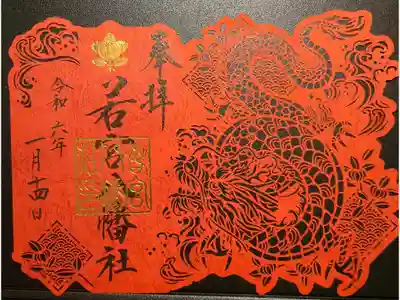 奉拝
若宮八幡社
令和六年
一月十四日